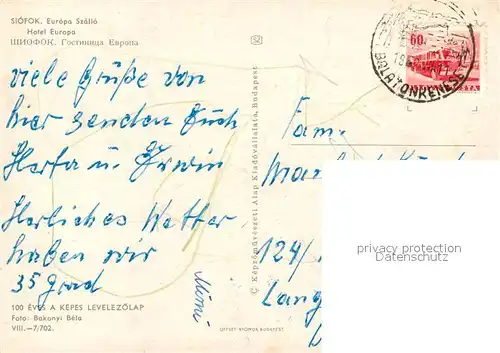 SIÓFOK. Európa Szálló
Hotel Europa
ШИОФОК. Гостиница Европа
viele Grüße von
hier senden Euch
Herta u. Erwin
Herliches Wetter
haben wir
35 Grad
Mimi
100 ÉVES A KÉPES LEVELEZŐLAP
Foto: Bakonyi Béla
VIII.—7/702.
© Képzőművészeti Alap Kiadóvállalata, Budapest
OFFSET-NYOMDA, BUDAPEST
60f
BALATONKENESE
POSTA
Fam.
124/
Lang
privacy protection